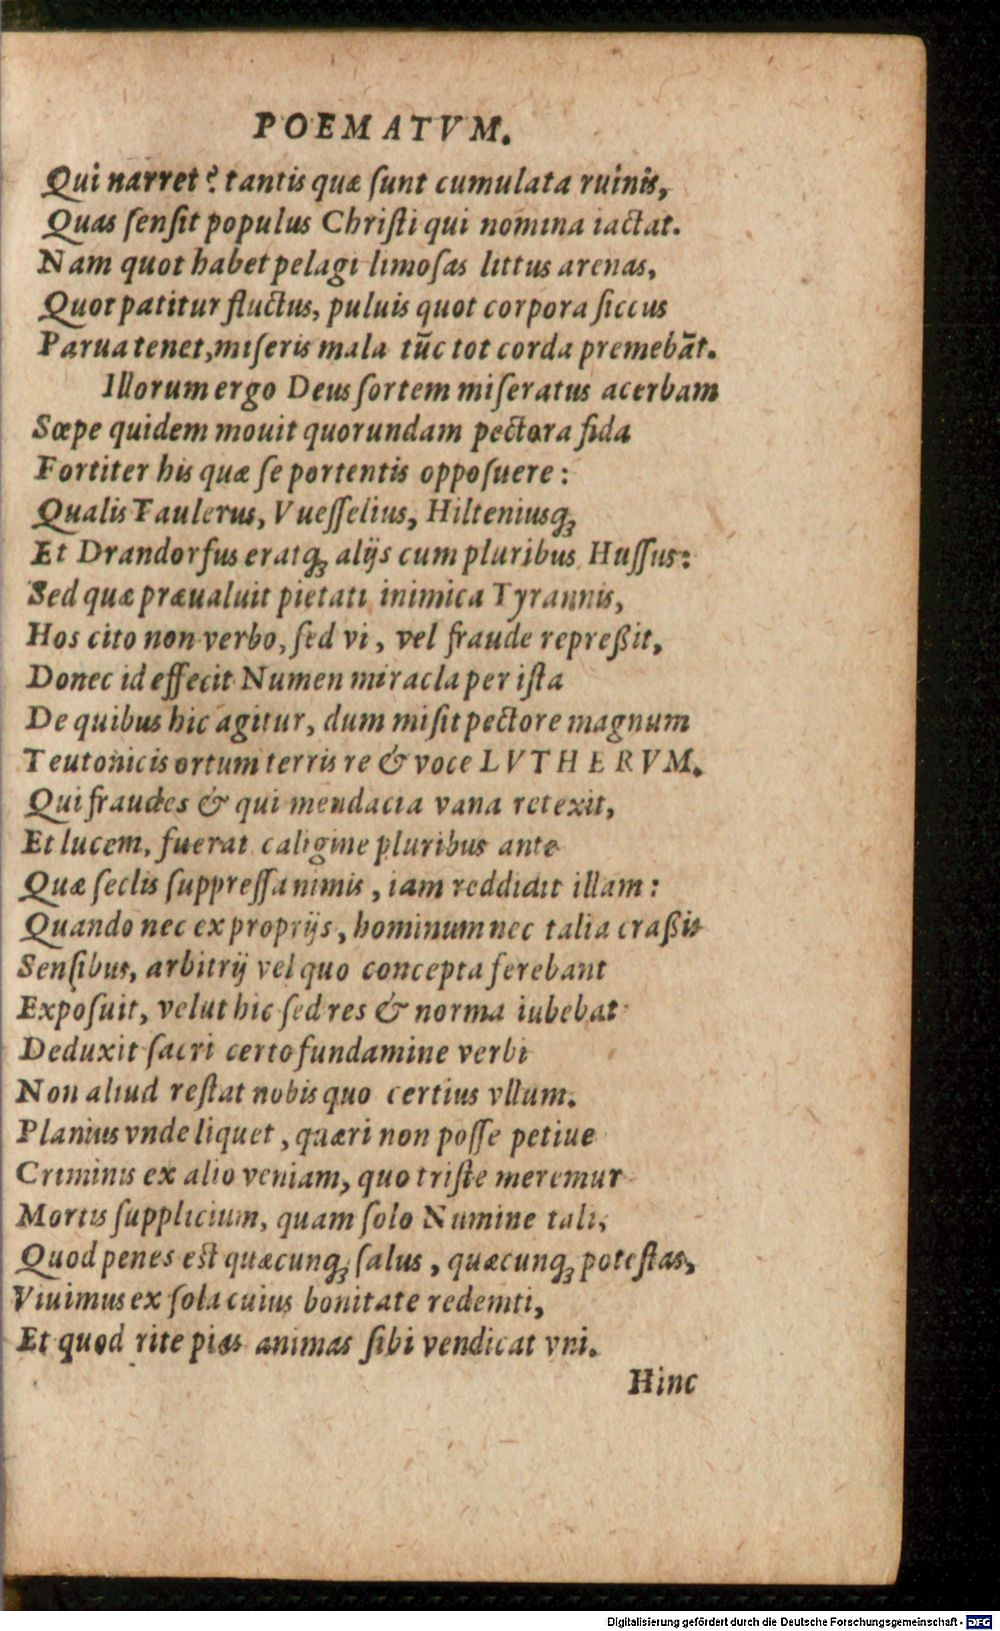 POEMATVM.
Qui narret? tantis quæ ſunt cumulata ruinis,
Quas ſenſit populus Chriſti qui nomina iactat.
Nam quot habet pelagi limoſas littus arenas,
Quot patitur fluctus, puluis quot corpora ſiccus
Parua tenet, miſeris mala tũc tot corda premebãt.
Illorum ergo Deus ſortem miſeratus acerbam
Sœpe quidem mouit quorundam pectora fida
Fortiter his quæ ſe portentis oppoſuere:
Qualis Taulerus, Vueſſelius, Hilteniusq;
Et Drandorfus eratq; alijs cum pluribus Huſſus:
Sed quæ præualuit pietati inimica Tyrannis,
Hos cito non verbo, ſed vi, vel fraude repreßit,
Donec id effecit Numen miracla per iſta
De quibus hic agitur, dum miſit pectore magnum
Teutonicis ortum terris re & voce LVTHERVM.
Qui fraudes & qui mendacia vana retexit,
Et lucem, fuerat caligine pluribus ante
Quæ ſeclis ſuppreſſa nimis, iam reddidit illam:
Quando nec ex proprijs, hominum nec talia craßis
Senſibus, arbitrij vel quo concepta ferebant
Expoſuit, velut hic ſed res & norma iubebat
Deduxit ſacri certo fundamine verbi
Non aliud reſtat nobis quo certius vllum.
Planius vnde liquet, quæri non poſſe petiue
Criminis ex alio veniam, quo triſte meremur
Mortis ſupplicium, quam ſolo Numine tali,
Quod penes est quæcunq; ſalus, quæcunq; poteſtas,
Viuimus ex ſola cuius bonitate redemti,
Et quod rite pias animas ſibi vendicat vni.
Hinc
Digitalisierung gefördert durch die Deutsche Forschungsgemeinschaft - DFG